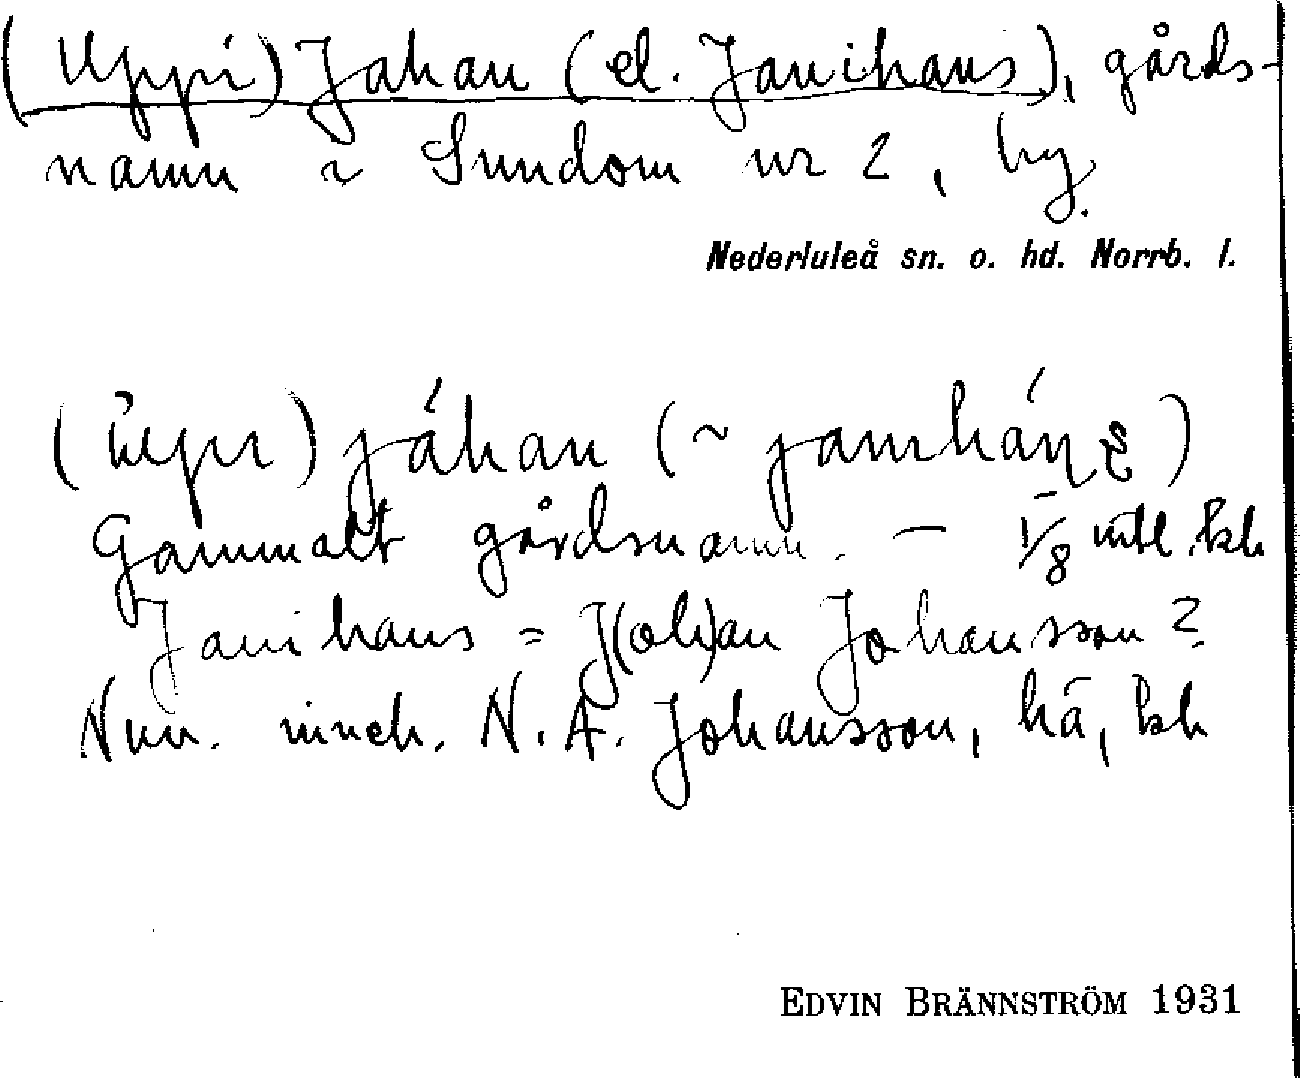 (Uppi) Jahan (el. Janihans), gårds-
namn i Sundom nr 2, by.
Nederluleå sn. o. hd. Norrb. l.
jáhan
Gammalt gårdsnamn. — 1/8 mtl. kh
Janihans = J(oh)an Johansson?
Nuv. inneh. N. A. Johansson, kh
EDVIN BRÄNNSTRÖM 1931